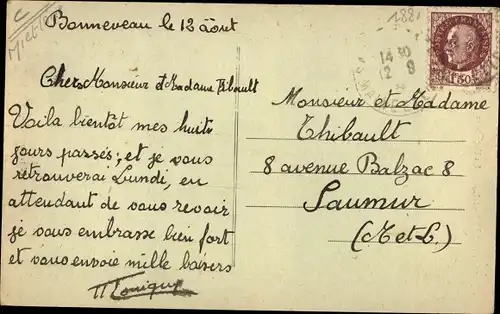 Bonneveau le 12 Août
Chers Monsieur et Madame Thibault
Voila bientôt mes huit
jours passés, et je vous
retrouverai Lundi, en
attendant de vous revoir
je vous embrasse bien fort
et vous envoie mille baisers
Monique
14 30
12 8
1F50
Monsieur et Madame
Thibault
8 avenue Balzac 8
Saumur
(M et L)